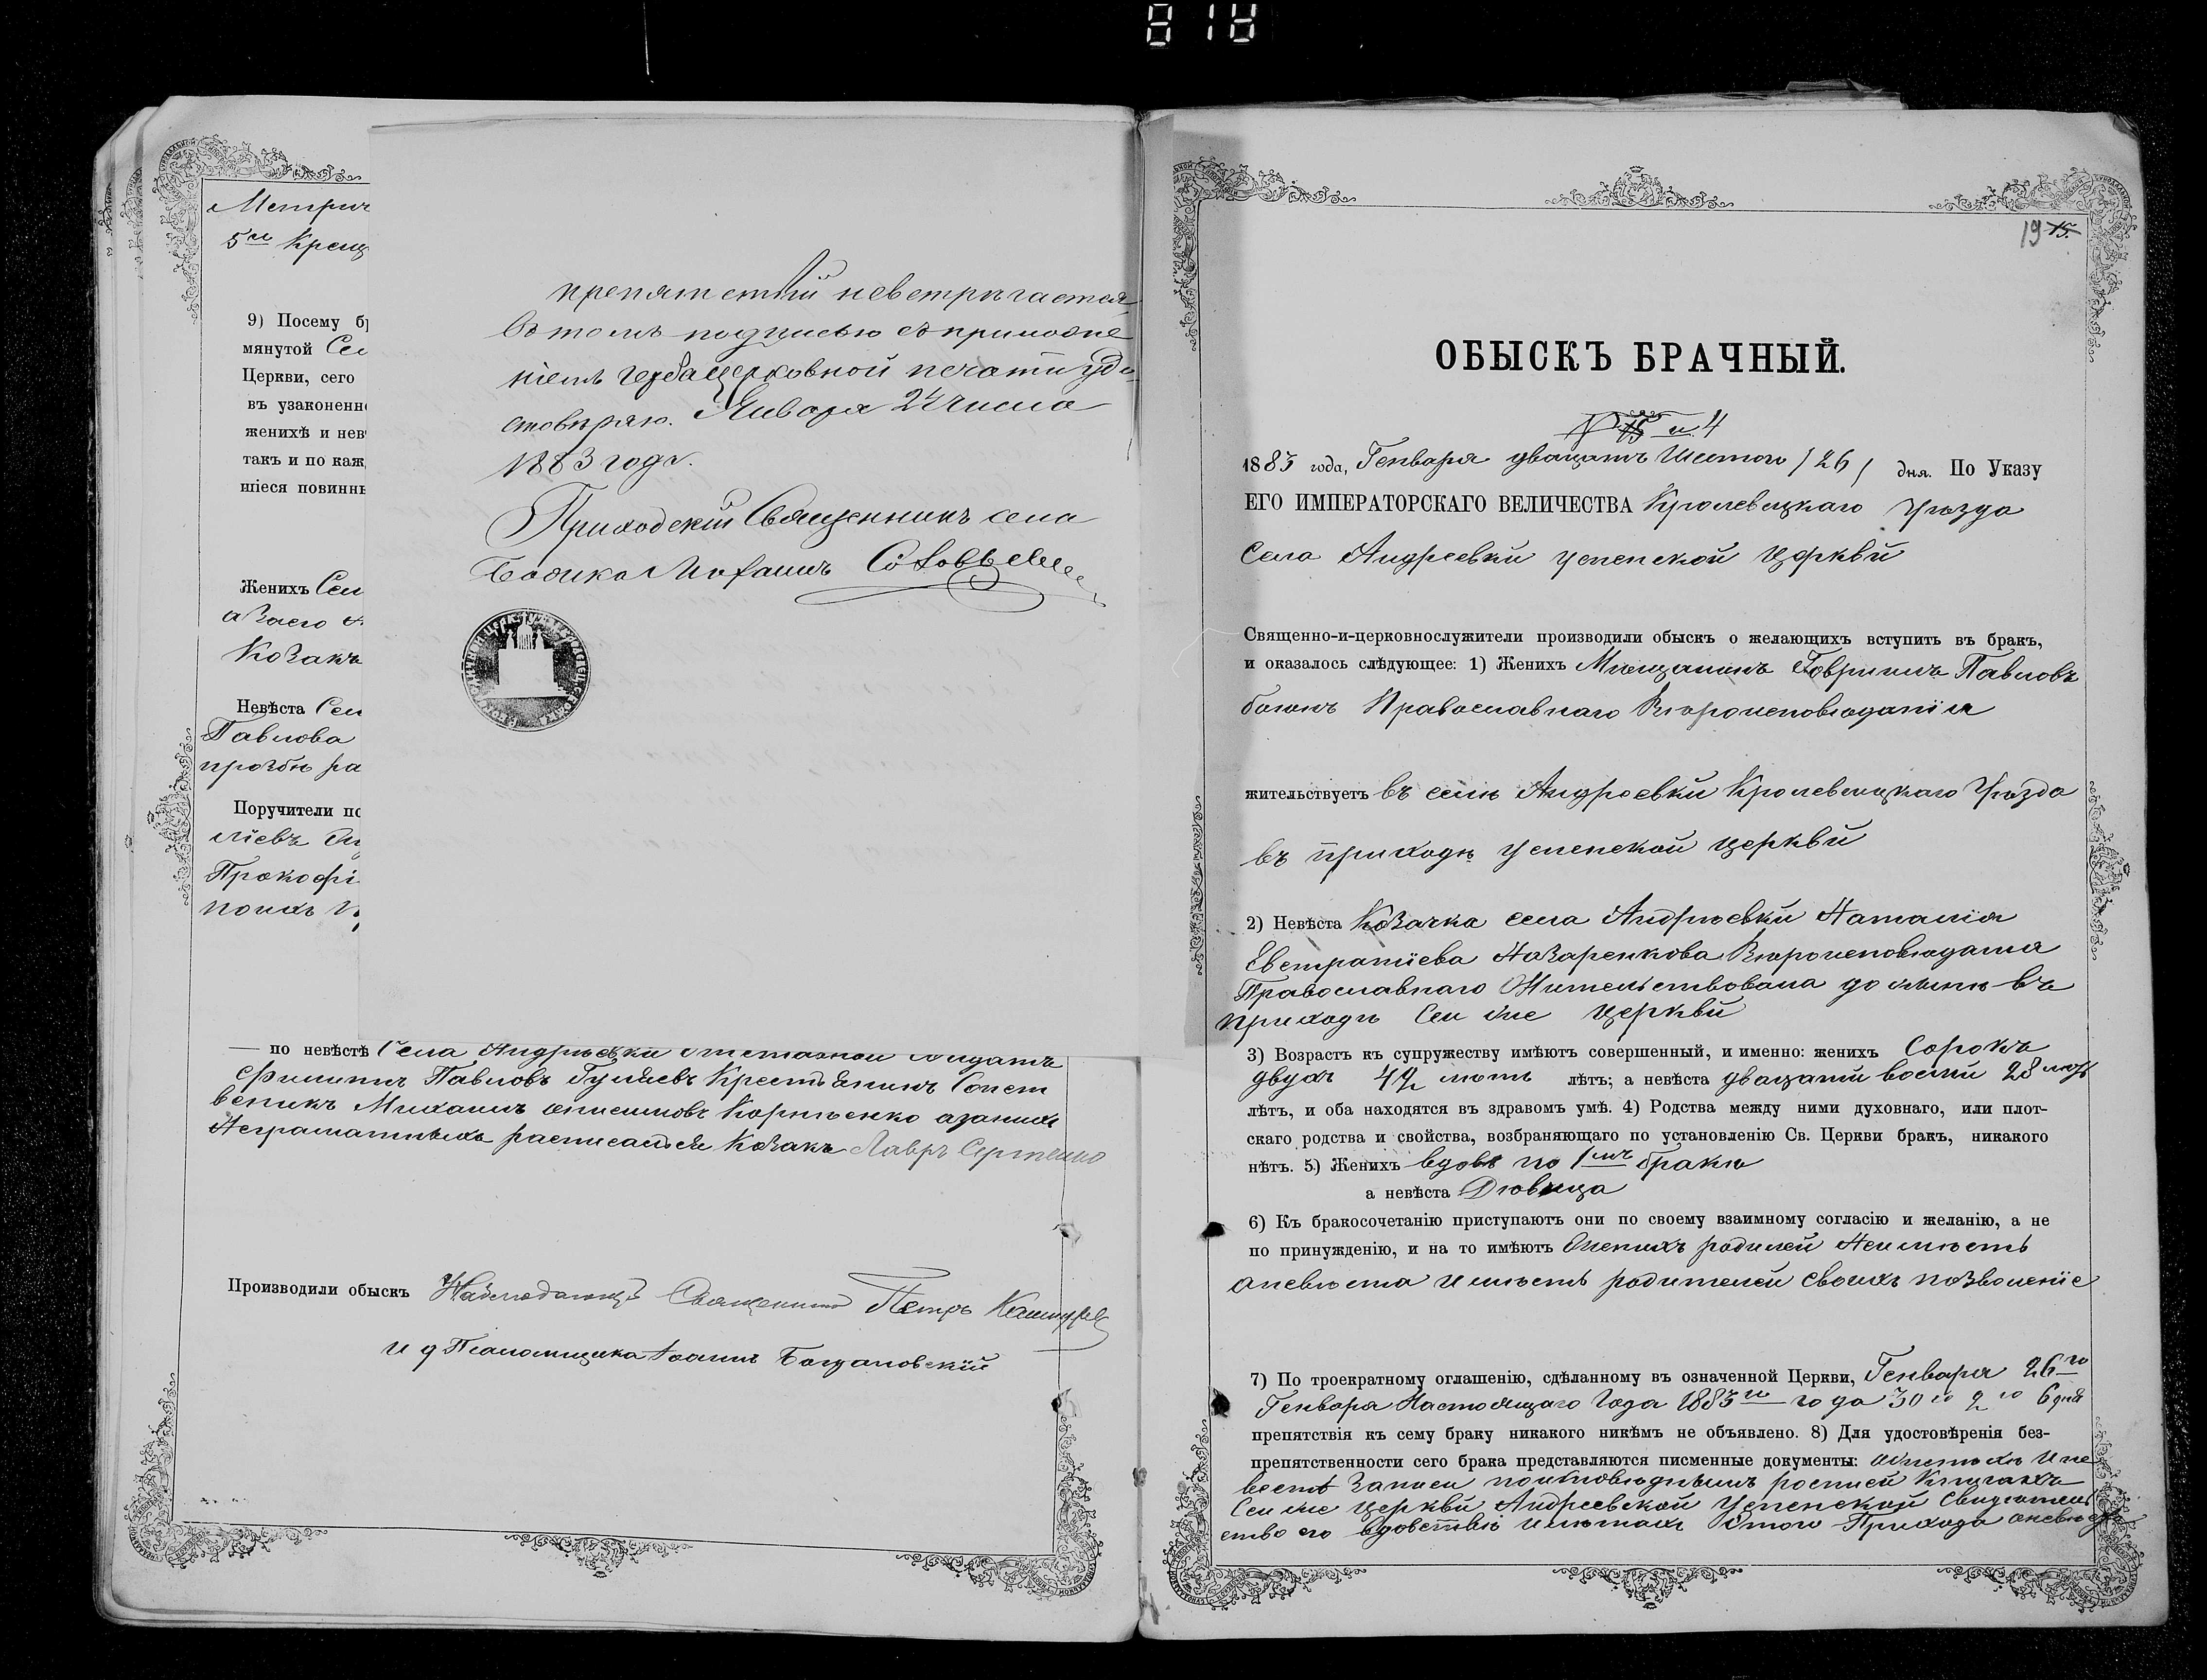 818
Метрич
5ш Крещ
9) Посему бр
мянутой Сел
Церкви, сего
въ узаконенн
женихѣ и нев
такъ и по каж
шіеся повинны
Женихъ Сел
Козакъ
Невѣста Сел
Павлова
прозбѣ ра
Поручители по
Прокофі
препятствій невстрѣчается
въ томъ подписью съ приложе
ніемъ герба церковной печати удо
стовѣряю. Января 24 числа
1883 года.
Приходскій Священникъ села
Іоаннъ Соловьевъ
— по невѣстѣ Села Андрѣевки отставной Солдатъ
Филипъ Павловъ Гуляевъ Крестьянинъ Собст
веникъ Михаилъ Корнѣенко азанихъ
Неграматныхъ расписался Козакъ Лавръ Сергѣенко
Производили обыскъ Наблюдающій Священникъ Петръ
и д Псаломщика Іоаннъ Богдановскій
19 15.
ОБЫСКЪ БРАЧНЫЙ.
№ 15 и 4
1883 года, Генваря двацать Шестого /26/ дня. По Указу
ЕГО ИМПЕРАТОРСКАГО ВЕЛИЧЕСТВА Кролевецкаго Уѣзда
Села Андреевки Успенской Церкви
Священно-и-церковнослужители производили обыскъ о желающихъ вступить въ бракъ,
и оказалось слѣдующее: 1) Женихъ Мѣщанинъ Гавриилъ Павловъ
Православнаго Вѣроисповѣданія
жительствуетъ въ селѣ Андреевки Кролевецкаго Уѣзда
въ приходѣ Успенской церкви
2) Невѣста Козачка села Андрѣевки Наталія
Евстратіева Назаренкова Вѣроисповѣдания
Православнаго Жительствовала до селѣ въ
приходѣ Сей же Церкви
3) Возрастъ къ супружеству имѣютъ совершенный, и именно: женихъ Сорокъ
двухъ 42 лѣтъ лѣтъ; а невѣста двацати восьми 28 лѣтъ
лѣтъ, и оба находятся въ здравомъ умѣ. 4) Родства между ними духовнаго, или плот-
скаго родства и свойства, возбраняющаго по установленію Св. Церкви бракъ, никакого
нѣтъ. 5) Женихъ вдовъ по 1мъ бракѣ
а невѣста Дѣвица
6) Къ бракосочетанію приступаютъ они по своему взаимному согласію и желанію, а не
по принужденію, и на то имѣютъ Женихъ родилей Неимѣетъ
аневѣста имѣетъ родителей своихъ позволеніе
7) По троекратному оглашенію, сдѣланному въ означенной Церкви, Генваря 26го
Генваря Настоящаго Года 1883го года 30го 2го 6 дня
препятствія къ сему браку никакого никѣмъ не объявлено. 8) Для удостовѣренія без-
препятственности сего брака представляются писменные документы:
Записи поисповѣднымъ росписей Книгахъ
Сей же церкви Андреевской Успенской Свидѣтель
ство его вдовствѣ и лѣтахъ Прихода аневѣста